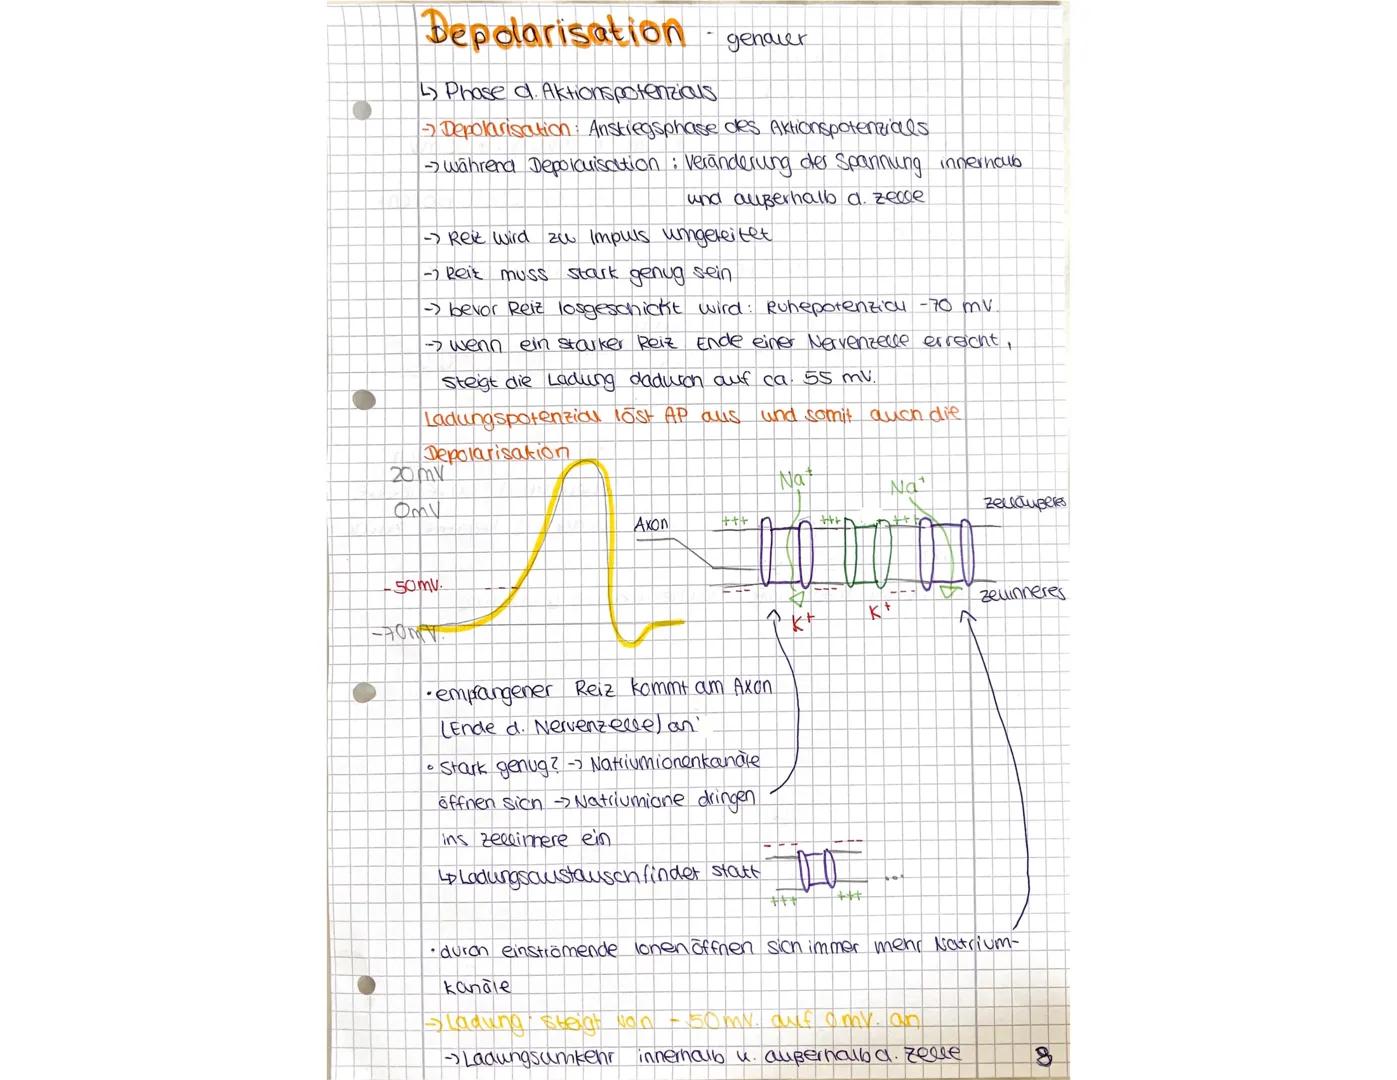 Depolarisation - genauer
↳ Phase d. Aktionspotenzials
→ Depolarisation: Anstiegsphase des Aktionspotenzials
→ während Depolarisation: Veränderung der Spannung innerhalb
und außerhalb d. Zelle
→ Reiz wird zu Impuls umgeleitet
→ Reiz muss stark genug sein
→ bevor Reiz losgeschickt wird: Ruhepotenzial -70 mV.
→ wenn ein starker Reiz Ende einer Nervenzelle erreicht,
steigt die Ladung dadurch auf ca. 55 mV.
Ladungspotenzial löst AP aus und somit auch die
Depolarisation
20mV
0mV
-50mV.
-70mV.
Axon
Na⁺
Na⁺
+++
+++
+++
Zelläußeres
---
---
---
Zellinneres
K+
K+
• empfangener Reiz kommt am Axon
(Ende d. Nervenzelle) an
• stark genug? → Natriumionenkanäle
öffnen sich → Natriumione dringen
ins Zellinnere ein
↳ Ladungsaustausch findet statt
---
---
+++
+++
...
• durch einströmende Ionen öffnen sich immer mehr Natrium-
kanäle
→ Ladung steigt von -50mV. auf 0mV. an
→ Ladungsumkehr innerhalb u. außerhalb d. Zelle
8